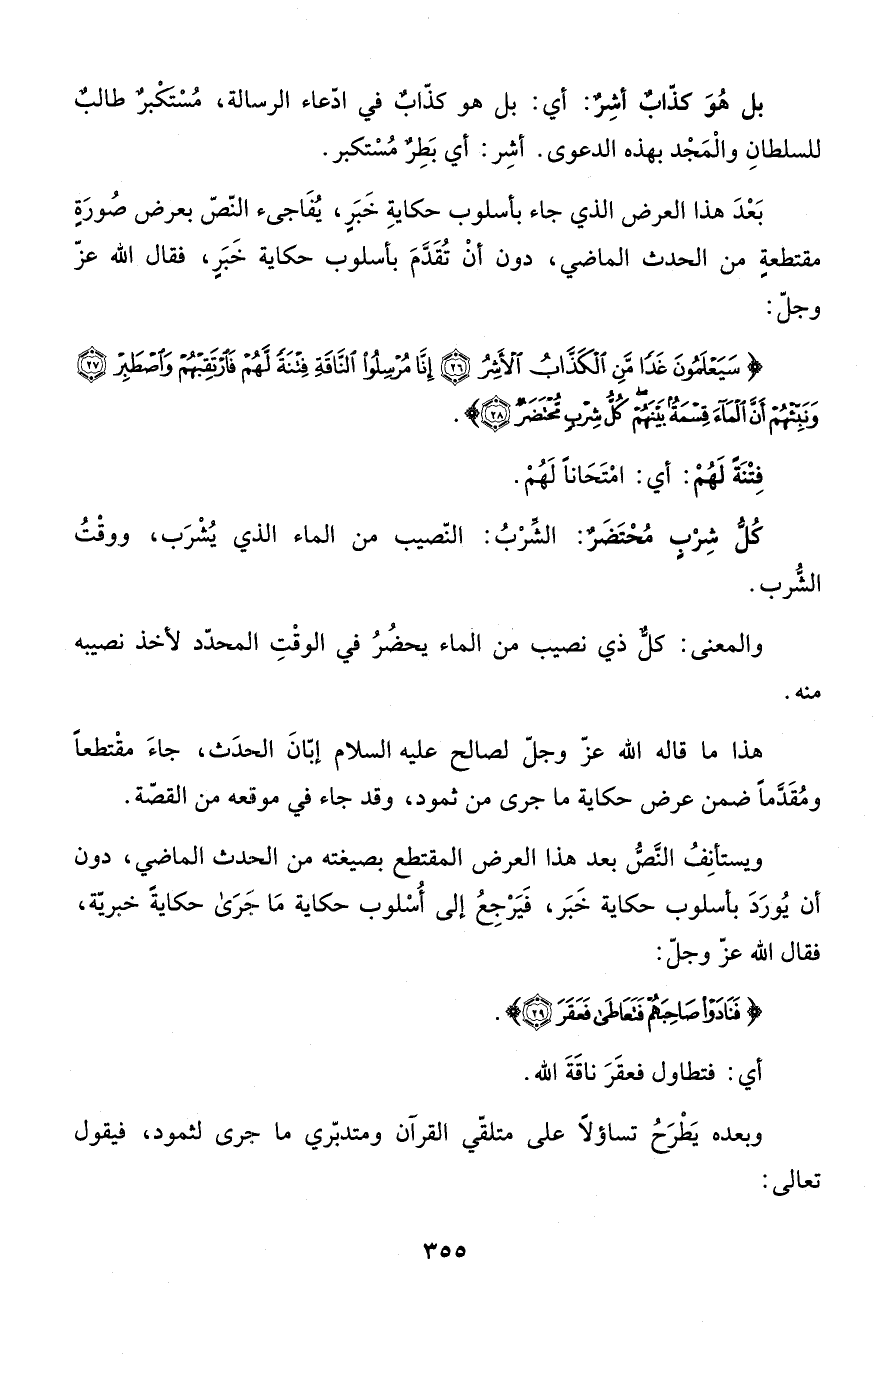 بل هُوَ كذّابٌ أشِرٌ: أي: بل هو كذّابٌ في ادّعاء الرسالة، مُسْتَكْبرٌ طالبٌ
للسلطانِ والْمَجْد بهذه الدعوى. أشر: أي بَطِرٌ مُسْتكبر.
بَعْدَ هذا العرض الذي جاء بأسلوب حكايةِ خَبَرٍ، يُفَاجىء النّصّ بعرض صُورَةٍ
مقتطعةٍ من الحدث الماضي، دون أنْ تُقَدَّمَ بأسلوب حكاية خَبَرٍ، فقال الله عزّ
وجلّ:
﴿ سَيَعْلَمُونَ غَدًا مَّنِ ٱلْكَذَّابُ ٱلْأَشِرُ ۝٢٦ إِنَّا مُرْسِلُوا۟ ٱلنَّاقَةِ فِتْنَةً لَّهُمْ فَٱرْتَقِبْهُمْ وَٱصْطَبِرْ ۝٢٧
وَنَبِّئْهُمْ أَنَّ ٱلْمَآءَ قِسْمَةٌۢ بَيْنَهُمْ ۖ كُلُّ شِرْبٍ مُّحْتَضَرٌ ۝٢٨﴾.
فِتْنَةً لَهُمْ: أي: امْتَحَاناً لَهُمْ.
كُلُّ شِرْبٍ مُحْتَضَرٌ: الشِّرْبُ: النّصيب من الماء الذي يُشْرَب، ووقْتُ
الشُّرب.
والمعنى: كلُّ ذي نصيب من الماء يحضُرُ في الوقْتِ المحدّد لأخذ نصيبه
منه.
هذا ما قاله الله عزّ وجلّ لصالح عليه السلام إبّانَ الحدَث، جاءَ مقْتطعاً
ومُقَدَّماً ضمن عرض حكاية ما جرى من ثمود، وقد جاء في موقعه من القصّة.
ويستأنِفُ النَّصُّ بعد هذا العرض المقتطع بصيغته من الحدث الماضي، دون
أن يُورَدَ بأسلوب حكاية خَبَر، فَيَرْجِعُ إلى أُسْلوب حكاية مَا جَرَىٰ حكايةً خبريّة،
فقال الله عزّ وجلّ:
﴿ فَنَادَوْا۟ صَاحِبَهُمْ فَتَعَاطَىٰ فَعَقَرَ ۝٢٩﴾.
أي: فتطاول فعقَرَ ناقَةَ الله.
وبعده يَطْرَحُ تساؤلاً على متلقّي القرآن ومتدبّري ما جرى لثمود، فيقول
تعالى:
٣٥٥